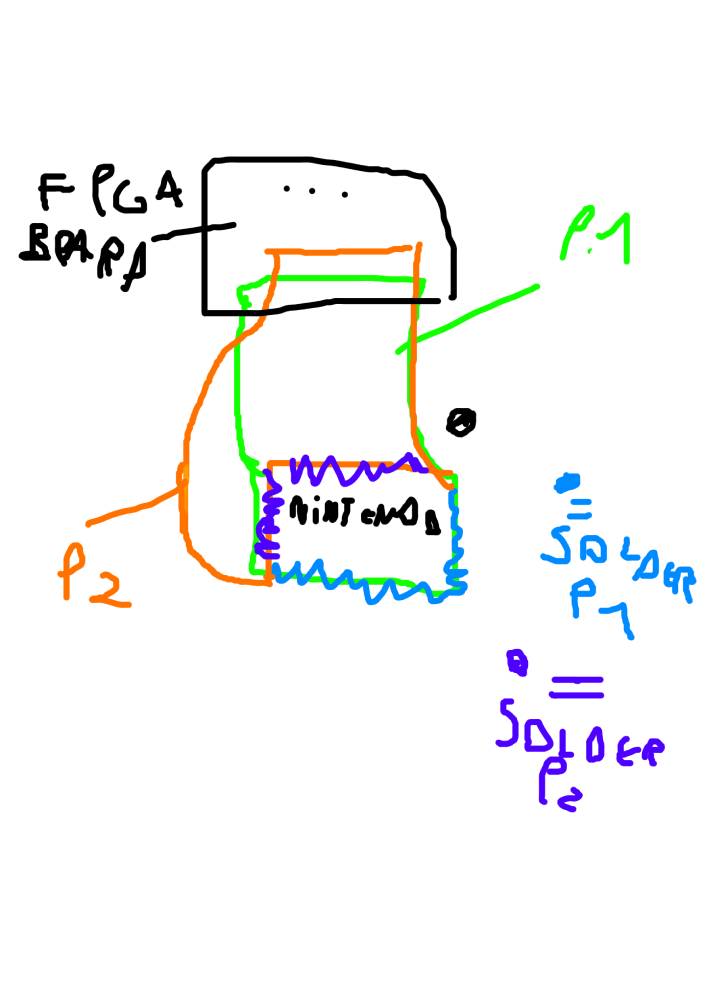 FPGA
BOARD
P.1
NiNTENDO
P2
=
SOLDER
P1
=
SOLDER
P2